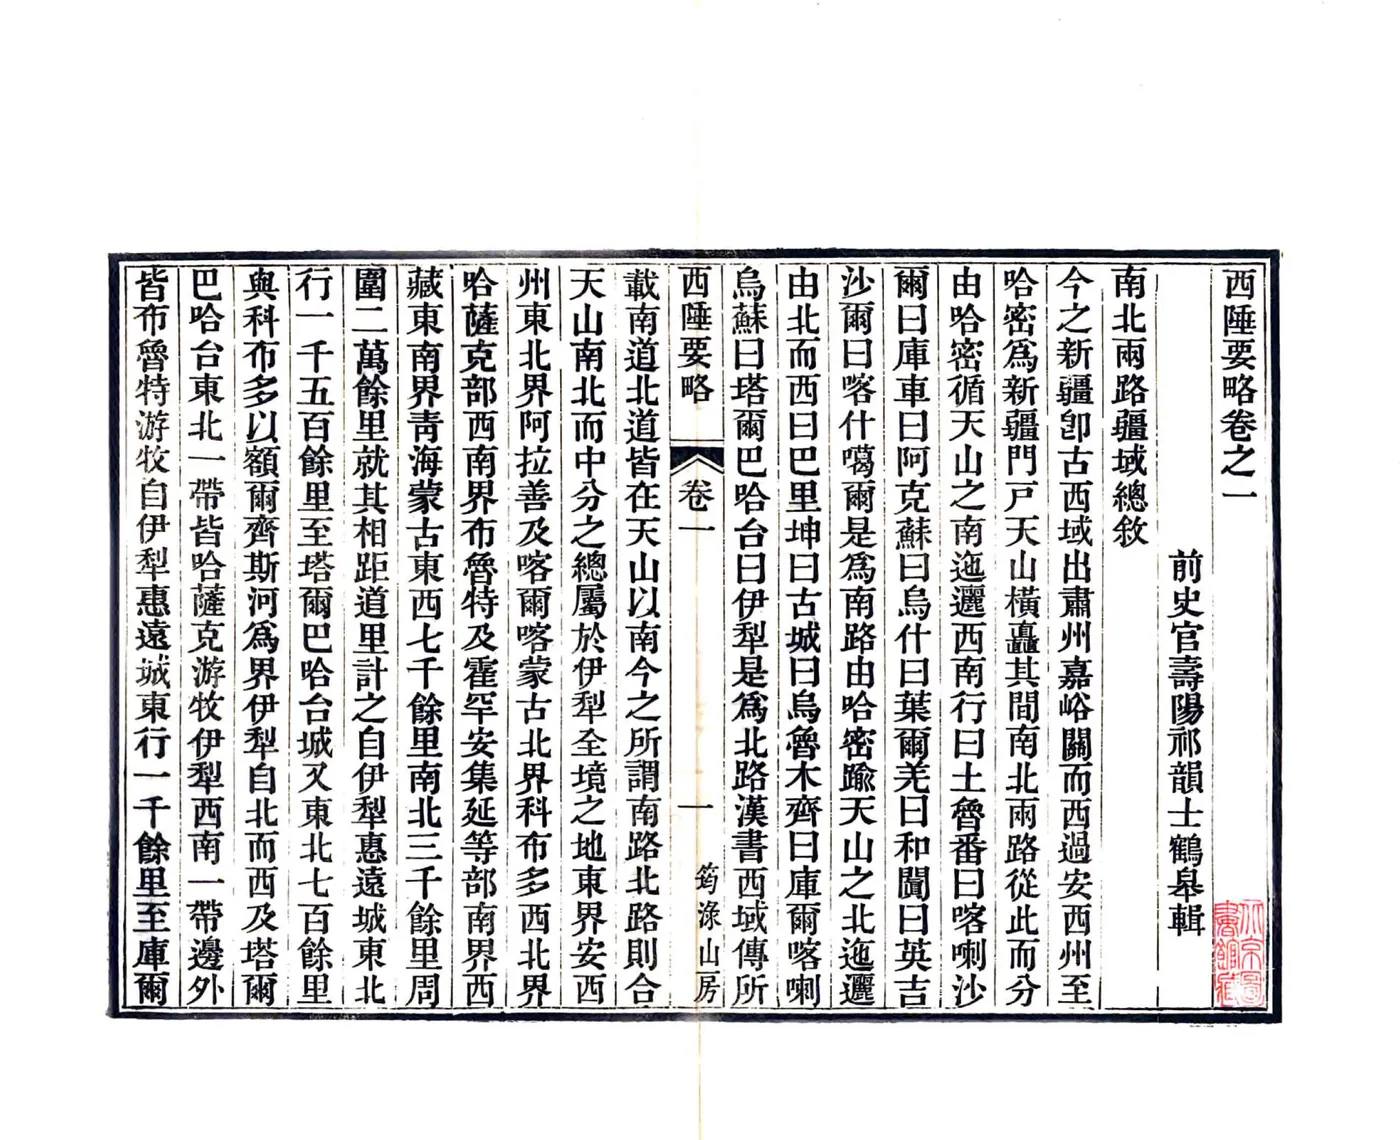 西陲要略卷之一
前史官壽陽祁韻士鶴皋輯
南北兩路疆域總敘
今之新疆卽古西域出肅州嘉峪關而西過安西州至
哈密爲新疆門戸天山橫矗其間南北兩路從此而分
由哈密循天山之南迤邐西南行曰土魯番曰喀喇沙
爾曰庫車曰阿克蘇曰烏什曰葉爾羌曰和闐曰英吉
沙爾曰喀什噶爾是爲南路由哈密踰天山之北迤邐
由北而西曰巴里坤曰古城曰烏魯木齊曰庫爾喀喇
烏蘇曰塔爾巴哈台曰伊犁是爲北路漢書西域傳所
西陲要略
卷一
一
筠淥山房
載南道北道皆在天山以南今之所謂南路北路則合
天山南北而中分之總屬於伊犁全境之地東界安西
州東北界阿拉善及喀爾喀蒙古北界科布多西北界
哈薩克部西南界布魯特及霍罕安集延等部南界西
藏東南界靑海蒙古東西七千餘里南北三千餘里周
圍二萬餘里就其相距道里計之自伊犁惠遠城東北
行一千五百餘里至塔爾巴哈台城又東北七百餘里
與科布多以額爾齊斯河爲界伊犁自北而西及塔爾
巴哈台東北一帶皆哈薩克游牧伊犁西南一帶邊外
皆布魯特游牧自伊犁惠遠城東行一千餘里至庫爾